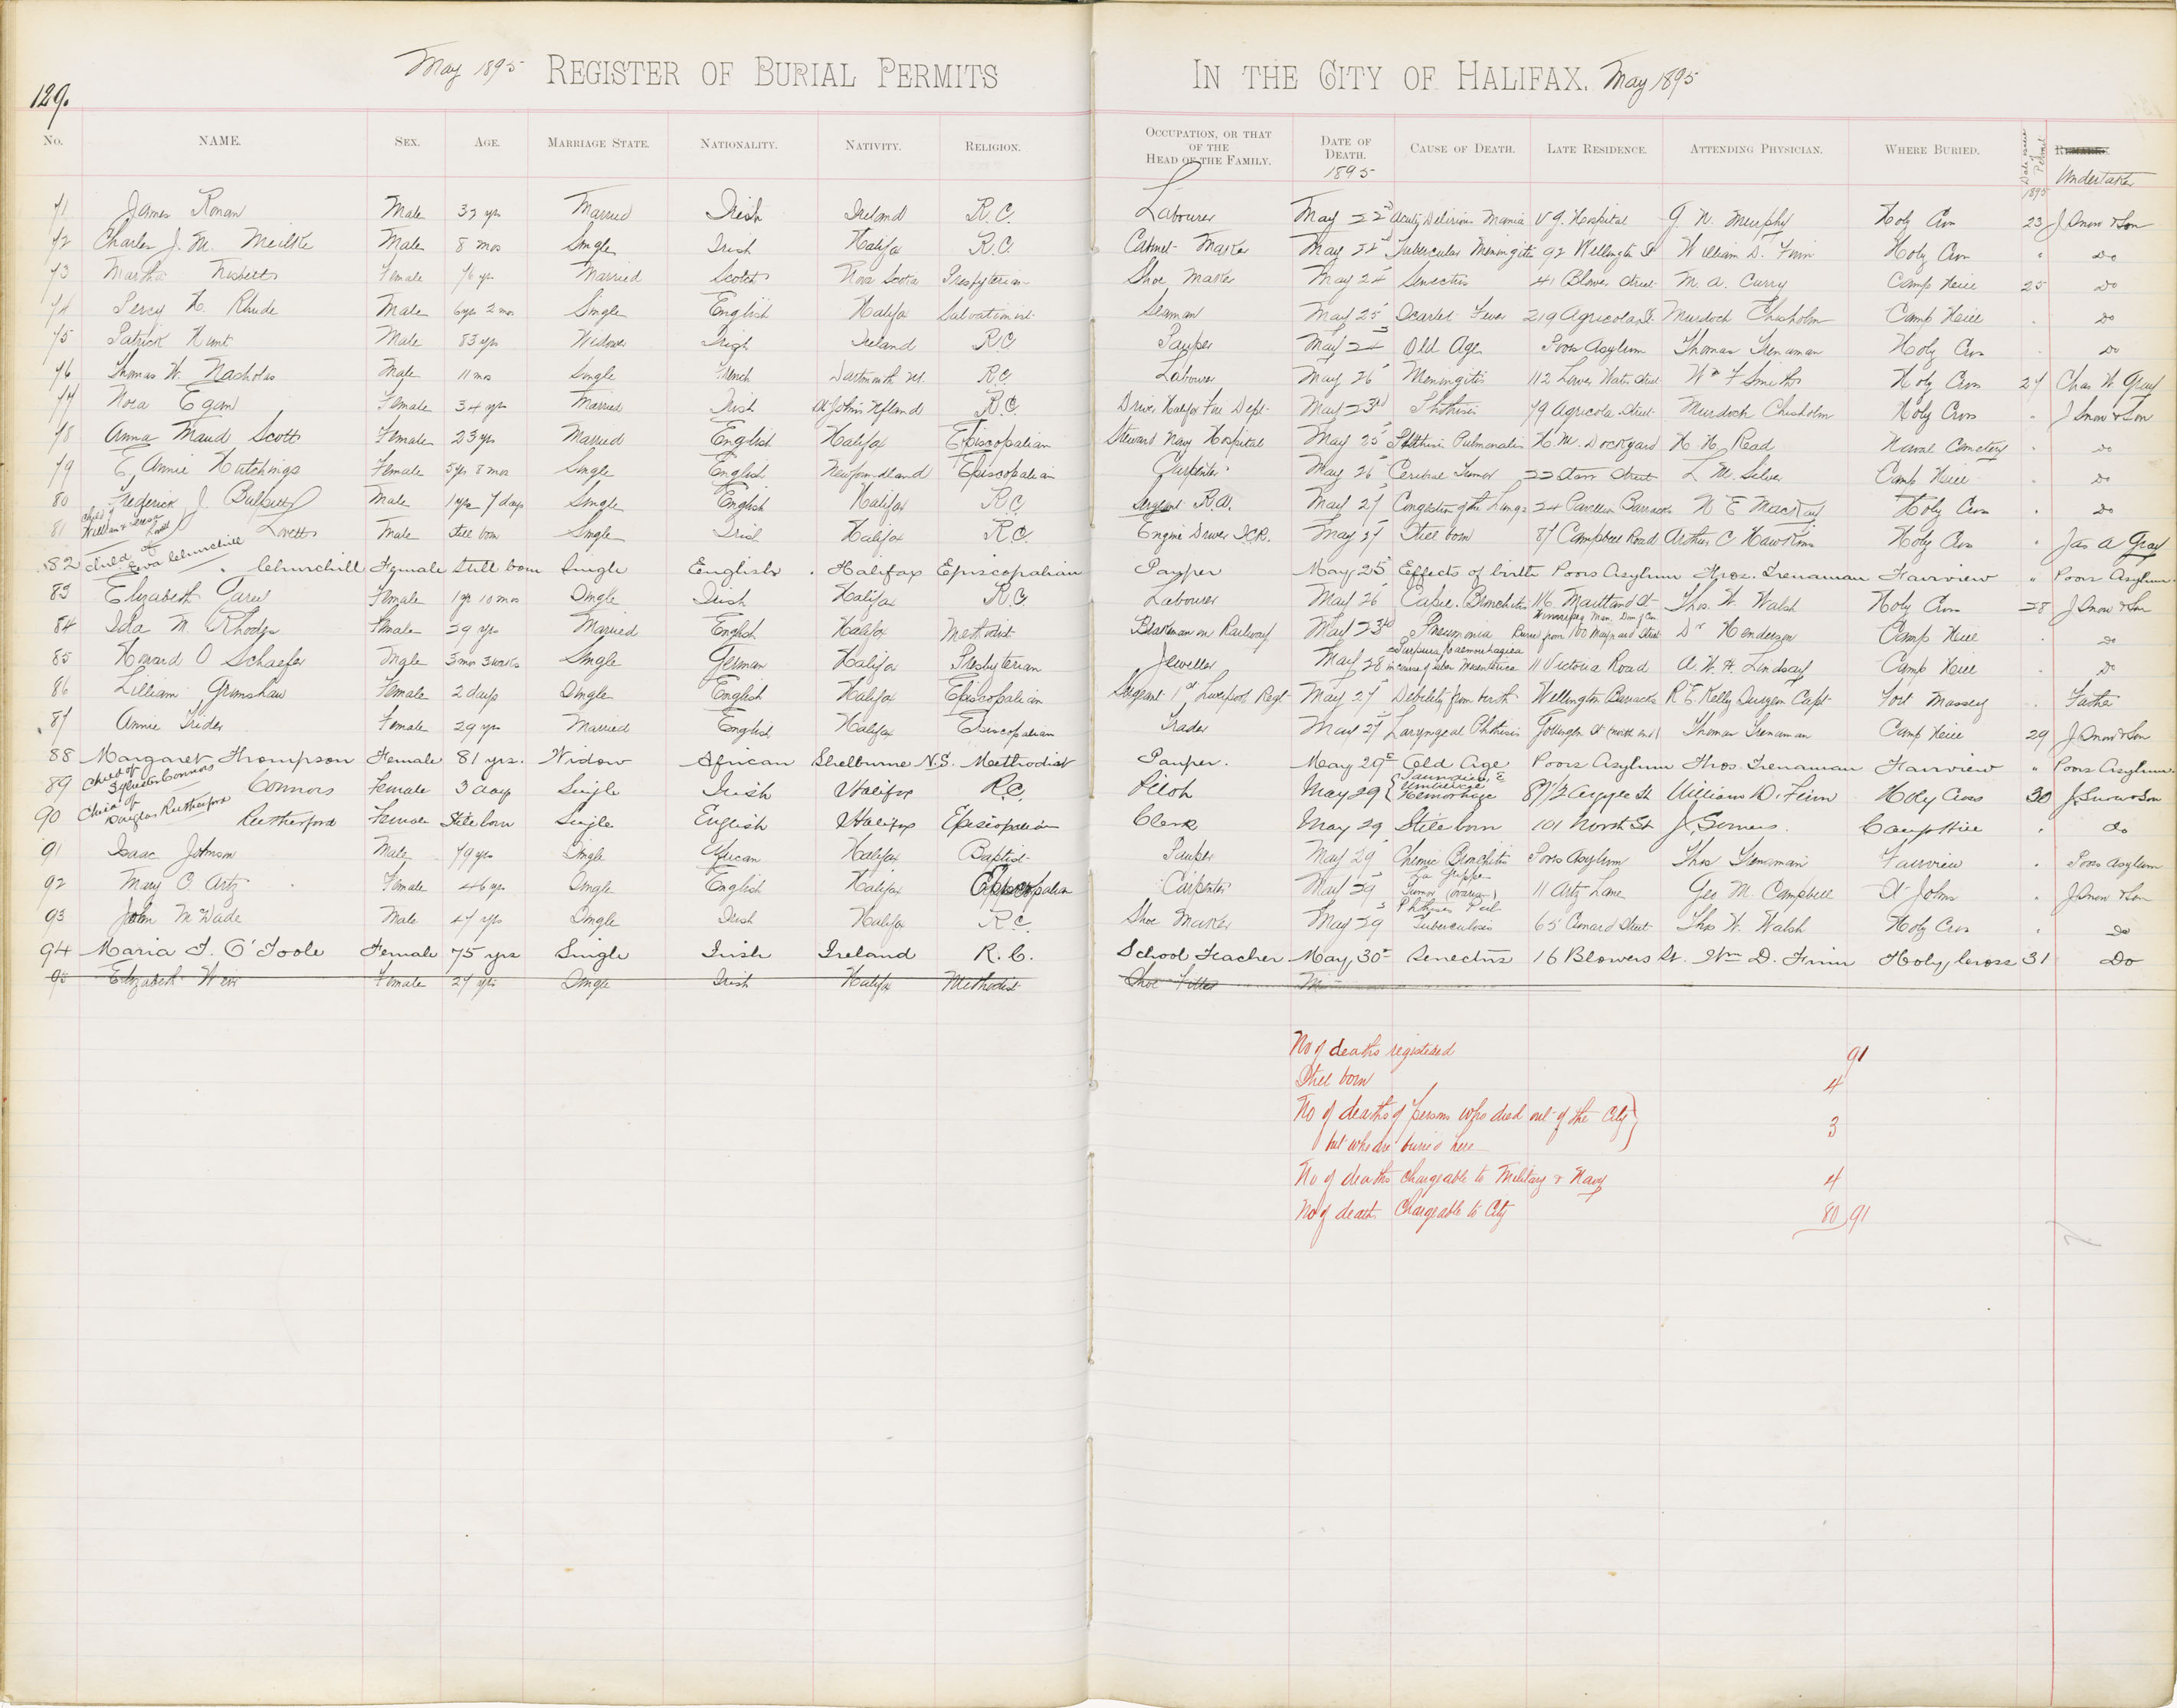 May 1895 REGISTER OF BURIAL PERMITS IN THE CITY OF HALIFAX. May 1895
129.
No. NAME. SEX. AGE. MARRIAGE STATE. NATIONALITY. NATIVITY. RELIGION. OCCUPATION, OR THAT OF THE HEAD OF THE FAMILY. DATE OF DEATH. 1895 CAUSE OF DEATH. LATE RESIDENCE. ATTENDING PHYSICIAN. WHERE BURIED. Date issue Permit 1895 REMARKS. Undertaker
71 James Ronan Male 32 yrs Married Irish Ireland R.C. Labourer May 22nd Acute Delirious Mania V G. Hospital G. N. Murphy Holy Cross 23 J Snow & Son
72 Charles J. M. Male 8 mos Single Irish Halifax R.C. Cabinet Maker May 22 Tubercular Meningitis 92 Wellington St William D. Finn Holy Cross " Do
73 Martha Nisbett Female 76 yrs Married Scotch Nova Scotia Presbyterian Shoe Maker May 24 Senectus 41 Blower Street M. A. Curry Camp Hill 25 Do
74 Percy H. Rhude Male 6 yrs 2 mos Single English Halifax Salvationist Seaman May 25 Scarlet Fever 219 Agricola St. Murdoch Chisholm Camp Hill " Do
75 Patrick Hunt Male 83 yrs Widower Irish Ireland R.C. Pauper May 24 Old Age Poors Asylum Thomas Trenaman Holy Cross " Do
76 Thomas W. Nacholas Male 11 mos Single French Dartmouth R.C. Labourer May 26 Meningitis 112 Lower Water Street Wm F Smith Holy Cross 27 Chas W Gray
77 Nora Egan Female 34 yrs Married Irish St Johns Nfland R.C. Driver Halifax Fire Dept. May 23rd Phthisis 79 Agricola Street Murdoch Chisholm Holy Cross " J Snow & Son
78 Anna Maud Scott Female 23 yrs Married English Halifax Episcopalian Steward Navy Hospital May 25 Phthisis Pulmonalis H. M. Dockyard H. H. Read Naval Cemetery " Do
79 E. Annie Hutchings Female 5 yrs 8 mos Single English Newfoundland Episcopalian Carpenter May 26 Cerebral Tumor 22 Street L M. Silver Camp Hill " Do
80 Frederick J. Male 1 yr 7 days Single English Halifax R.C. Sergeant R.A. May 27 Congestion of the Lungs 24 Pavilion Barracks N E MacKay Holy Cross " Do
81 Child of William & Lovett Male Still born Single Irish Halifax R.C. Engine Driver I.C.R. May 27 Still born 87 Campbell Road Arthur C Hawkins Holy Cross " Jas A Gray
82 Child of Eva Churchill Churchill Female Still born Single English Halifax Episcopalian Pauper May 25 Effects of birth Poors Asylum Thos. Trenaman Fairview " Poors Asylum
83 Elizabeth Female 1 yr 10 mos Single Irish Halifax R.C. Labourer May 26 Bronchitis 116 Maitland St Thos. W. Walsh Holy Cross 28 J Snow & Son
84 Ida M. Rhodes Female 29 yrs Married English Halifax Methodist Brakeman on Railway May 23rd Pneumonia Winnipeg Man. Dom of Can. Buried from 100 Maynard Street Dr Henderson Camp Hill " Do
85 Howard O Schaefer Male 3 mos 3 weeks Single German Halifax Presbyterian Jeweller May 28 Purpura Haemorrhagica 11 Victoria Road A. W. H. Lindsay Camp Hill " Do
86 Lilliam Grimshaw Female 2 days Single English Halifax Episcopalian Sergeant 1st Liverpool Regt. May 27 Debility from birth Wellington Barracks R E. Kelly Surgeon Capt. Fort Massey " Father
87 Annie Trider Female 29 yrs Married English Halifax Episcopalian Trader May 27 Laryngeal Phthisis Gottingen St (north end) Thomas Trenaman Camp Hill 29 J Snow & Son
88 Margaret Thompson Female 81 yrs. Widow African Shelburne N.S. Methodist Pauper. May 29 Old Age Poors Asylum Thos. Trenaman Fairview " Poors Asylum
89 Child of Sylvester Connors Connors Female 3 days Single Irish Halifax R.C. Pilot May 29 Jaundice & Umbilical Hemorrhage 87 1/2 Argyle St William D. Finn Holy Cross 30 J. Snow & Son
90 Child of Douglas Rutherford Rutherford Female Still born Single English Halifax Episcopalian Clerk May 29 Still born 101 North St J. Somers. Camp Hill " do
91 Isaac Johnson Male 79 yrs Single African Halifax Baptist Pauper May 29 Chronic Bronchitis Poors Asylum Thos Trenaman Fairview " Poors Asylum
92 Mary O. Artz Female 46 yrs Single English Halifax Episcopalian Carpenter May 29 La Grippe Tumor (ovarian) 11 Artz Lane Geo M. Campbell St Johns " J Snow & Son
93 John M Wade Male 47 yrs Single Irish Halifax R.C. Shoe Maker May 29 Phthisis Pul Tuberculosis 65 Conard Street Thos W. Walsh Holy Cross " Do
94 Maria T. O'Toole Female 75 yrs Single Irish Ireland R.C. School Teacher May, 30 Senectus 16 Blowers St. Wm D. Finn Holy Cross 31 Do
95 Elizabeth Weir Female 27 yrs Single Irish Halifax Methodist Shoe Fitter M
No of deaths registered 91
Still born 4
No of deaths of persons who died out of the City
but who are buried here 3
No of deaths chargeable to Military & Navy 4
No of deaths Chargeable to City 80 91